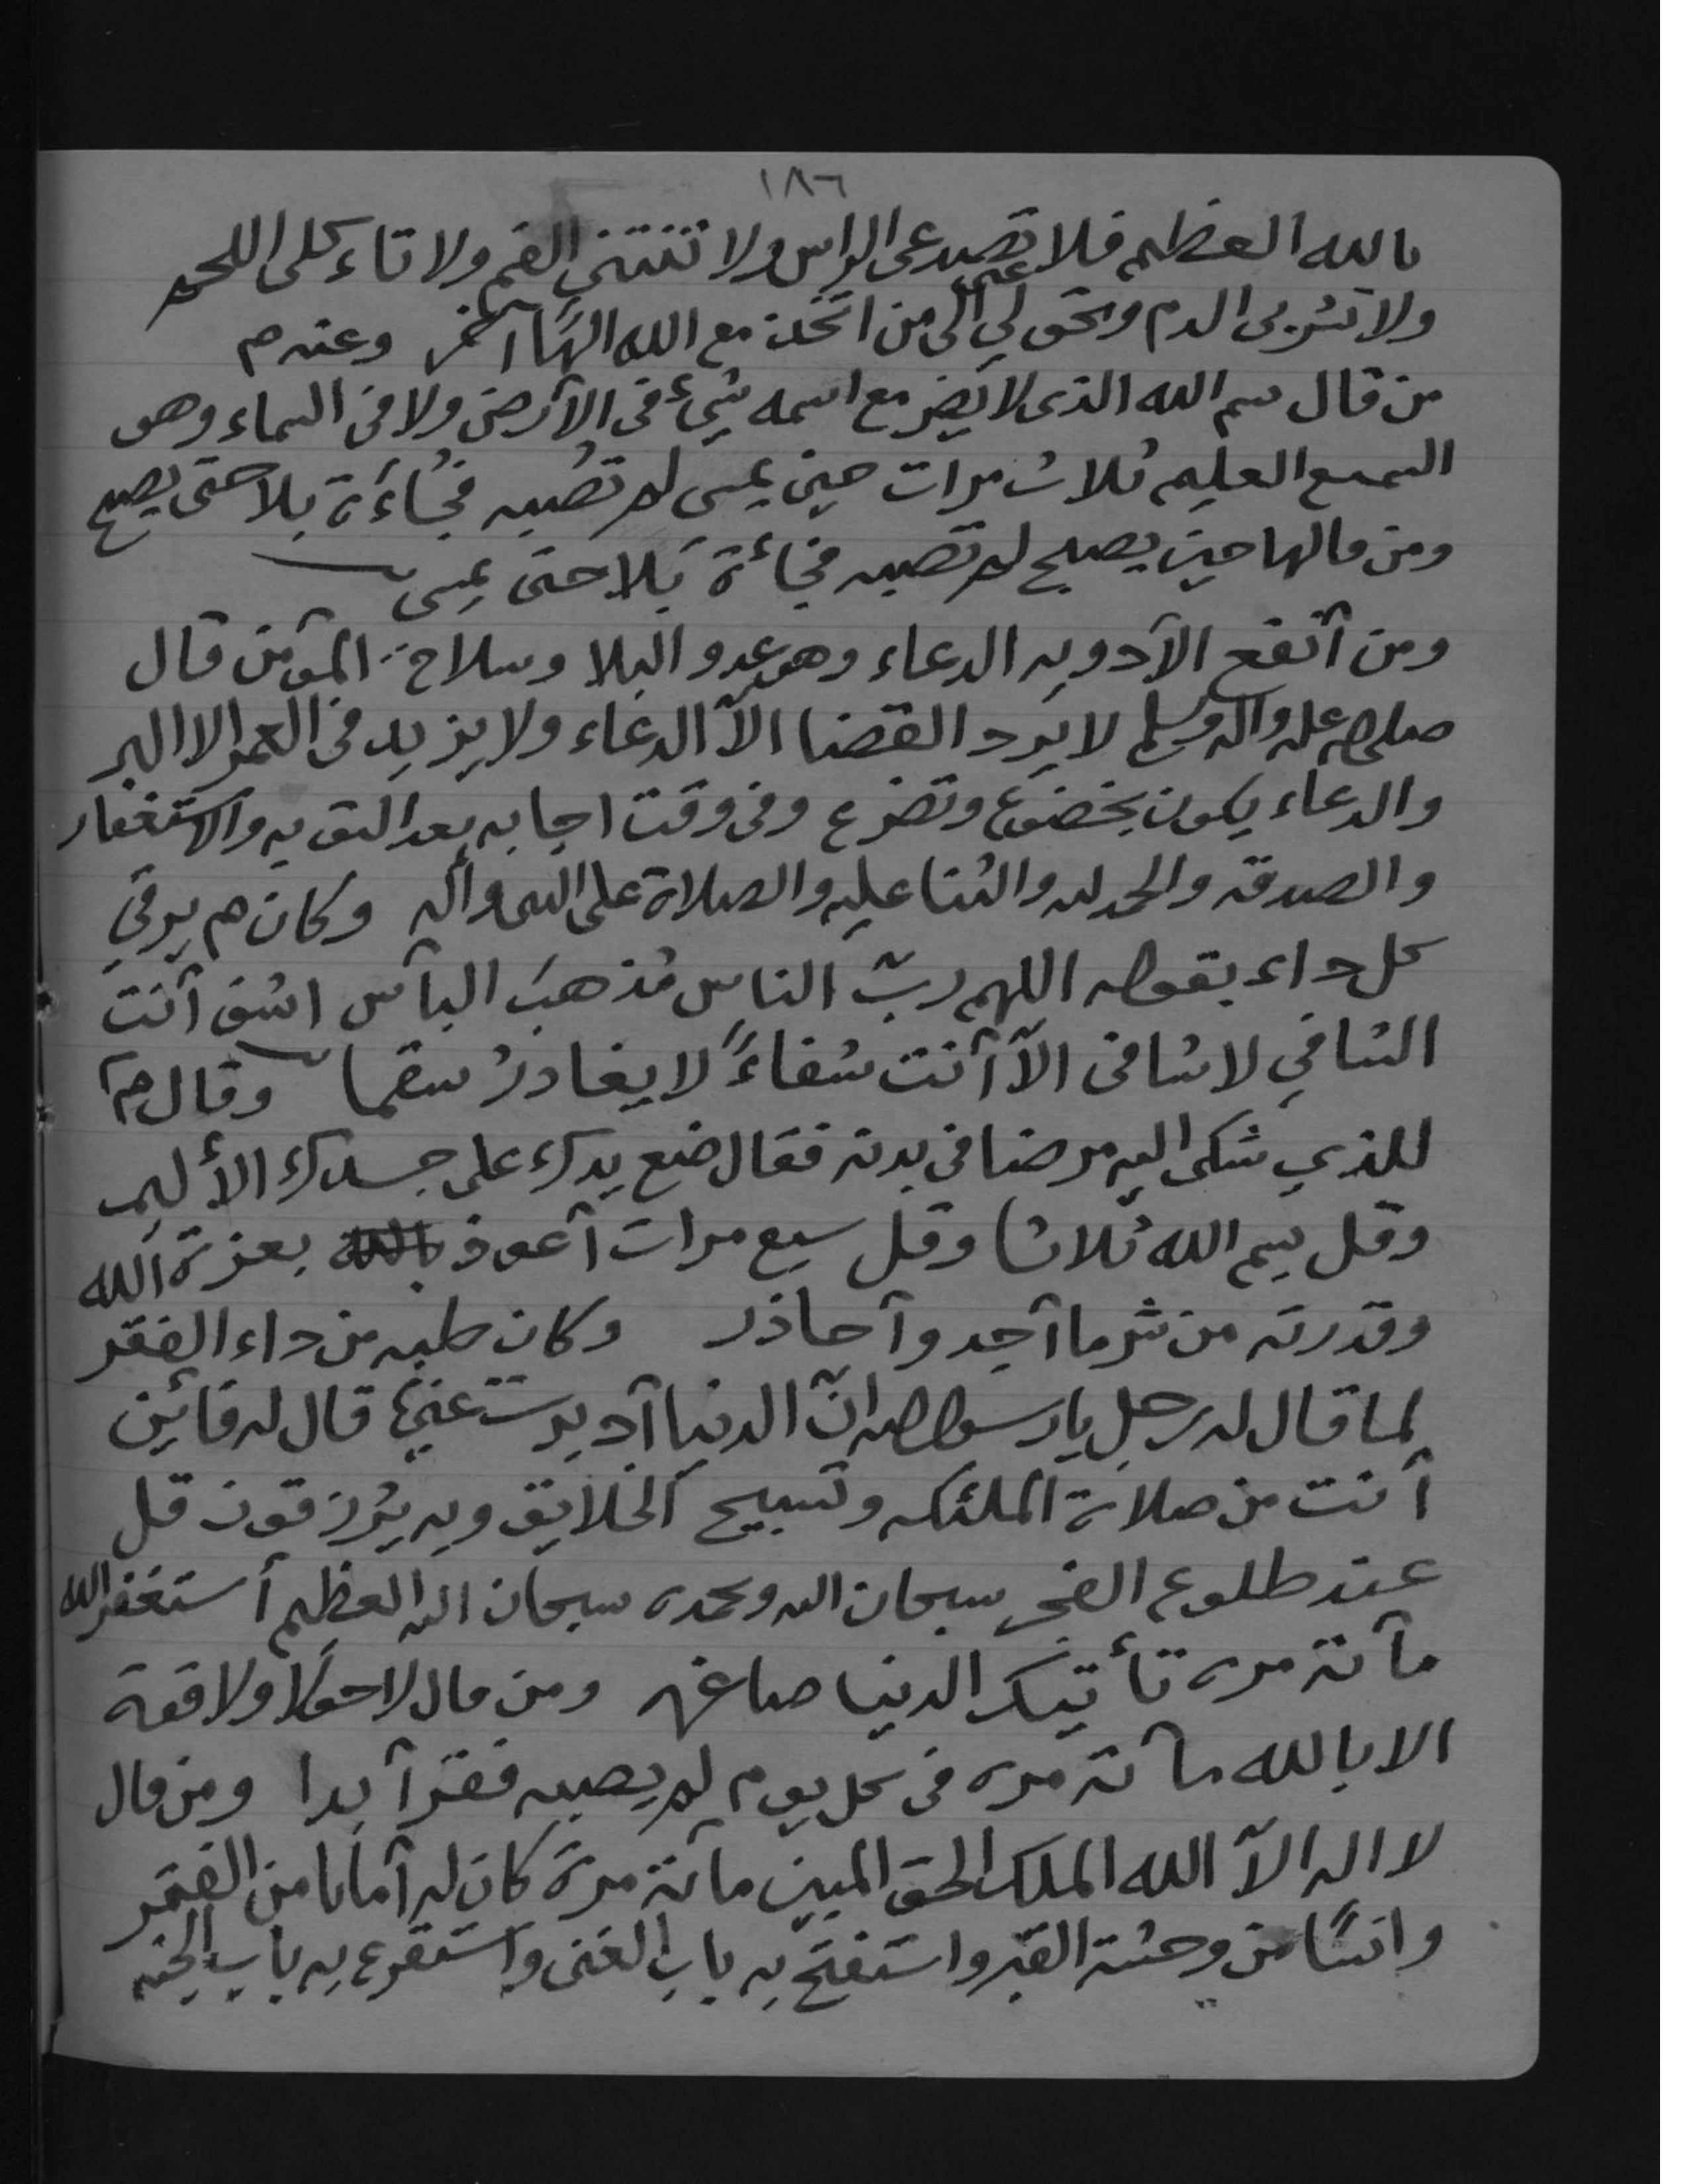 ١٨٦
بالله العظيم فلا تصدعى الراس ولا تنتني الفم ولا تاءكلى اللحم
ولا تشربى الدم وتحولي عني الى من اتخذ مع الله الهًا آخر وعنه م
من قال بسم الله الذى لا يضر مع اسمه شيء فى الآرض ولا فى السماء وهو
السميع العليم ثلاث مرات حين يمسى لم تصبه فجُاءَة بلا حتى يصبح
ومن قالها حين يصبح لم تصبه فجائة بَلا حتى يمسى
ومن آنفع الآدويه الدعاء وهو عدو البلا وسلاح المؤمن قال
صلى الله عليه واله وسلم لا يرد القضا الآ الدعاء ولا يزيد فى العمر الا البر
والدعاء يكون بخضوع وتضرع وفى وقت اجابه بعد التوبه والاستغفار
والصدقه والحمد لله والثنا عليه والصلاة على النبى وآله وكان م يرقي
كل داء بقوله اللهم ربّ الناس مُذهبَ البآس اشف آنت
الشافي لا شافى الآ آنت شفاءً لا يغادرُ سقما وقال م
للذي شكى اليه مرضا فى بدنه فقال ضع يدك على جسدك الأليم
وقل بسم الله ثلاثا وقل سبع مرات آعوذ بالله بعزة الله
وقدرته من شر ما آجد وآحاذر وكان طبه من داء الفقر
لما قال له رجل يا رسول الله انّ الدنيا آدبرت عني قال له فآين
آنت من صلاة الملئكه وتسبيح الخلايق وبه يُرزقون قل
عند طلوع الفجر سبحان الله وبحمده سبحان الله العظيم أستغفر الله
مآئة مره تأتيك الدنيا صاغره ومن قال لا حول ولا قوة
الا بالله مآئة مره فى كل يوم لم يصبه فقر آبدا ومن قال
لا اله الآ الله الملك الحق المبين مائة مرة كان له آمانا من الفقر
وانسًا من وحشة القبر واستفتح به باب الغنى واستقرع به باب الجنه